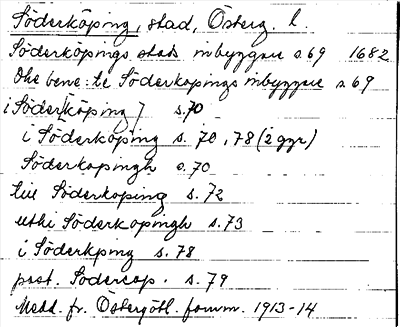 Söderköping, stad, Österg. l.
Söderköpings stads inbyggare s. 69 1682
Söderkopings inbyggre s. 69
i Söder[köping] s. 70
i Söderkoping s. 70, 78 (2 ggr)
Söderkopingh s. 70
till Söderkoping s. 72
uthi Söderkopingh s. 73
i Söderkping s. 78
past. Sodercop. s. 79
Medd. fr. Östergötl. fornm. 1913-14